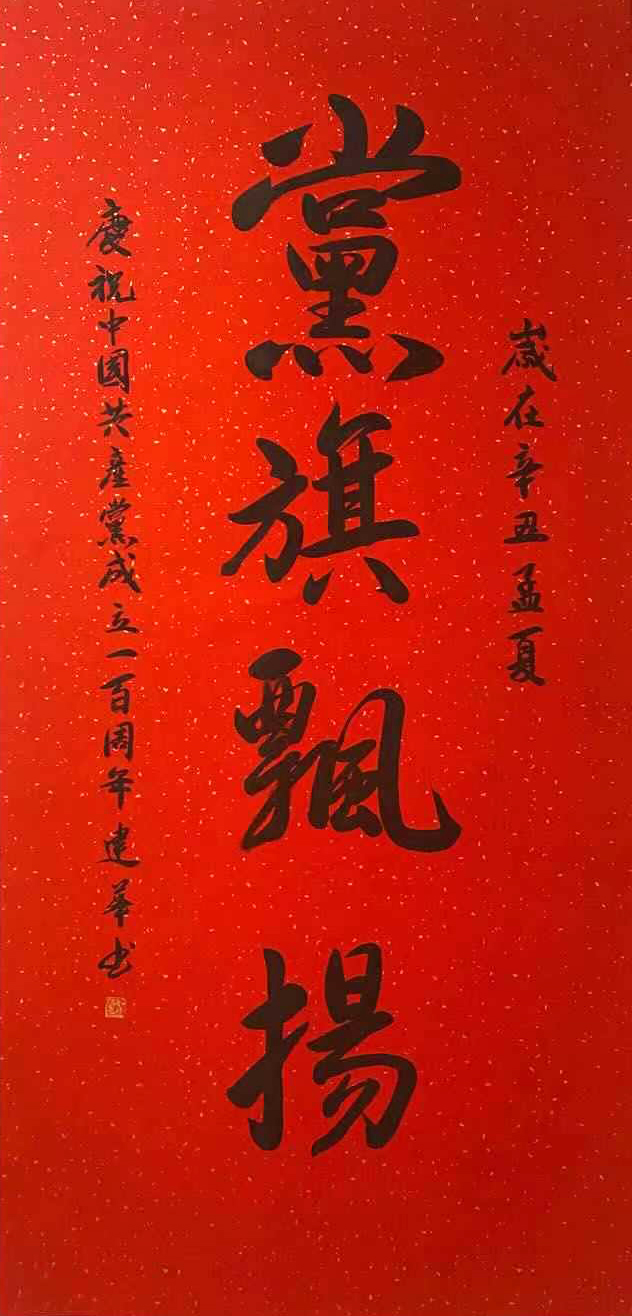 歲在辛丑孟夏
黨旗飄揚
慶祝中國共產黨成立一百周年建華书